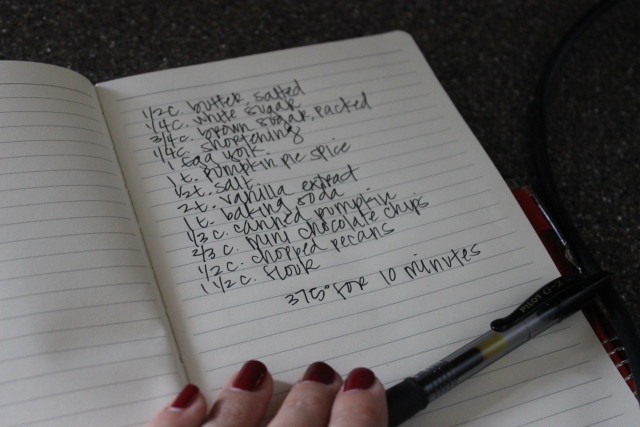 1/2 c. butter, salted
1/4 c. white sugar
3/4 c. brown sugar, packed
1/4 c. shortening
1 egg yolk
1 t. pumpkin pie spice
1/2 t. salt
2 t. vanilla extract
1 t. baking soda
1/3 c. canned pumpkin
2/3 c. mini chocolate chips
1/2 c. chopped pecans
1 1/2 c. flour
375° for 10 minutes
PILOT G-2